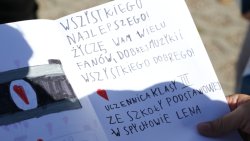 WSZYSTKIEGO
NAJLEPSZEGO!
ŻYCZĘ WAM WIELU
FANÓW, DOBREJ MUZYKI I
WSZYSTKIEGO DOBREGO!
UCZENNICA KLASY III
ZE SZKOŁY PODSTAWOWEJ
W SPYCHOWIE LENA